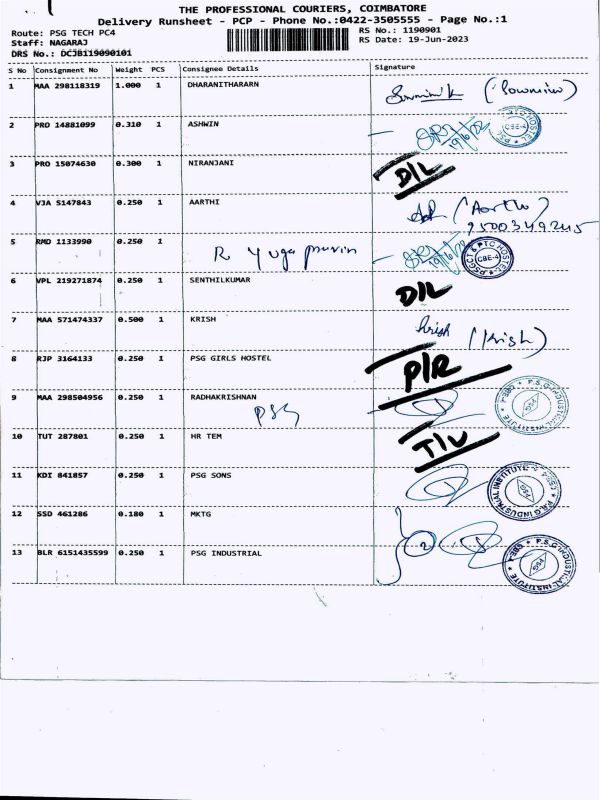 THE PROFESSIONAL COURIERS, COIMBATORE
Delivery Runsheet - PCP - Phone No.:0422-3505555 - Page No.:1
Route: PSG TECH PC4 RS No.: 1190901
Staff: NAGARAJ RS Date: 19-Jun-2023
DRS No.: DCJB119090101
S No Consignment No Weight PCS Consignee Details Signature
1 MAA 298118319 1.000 1 DHARANITHARARN
2 PRO 14881099 0.310 1 ASHWIN
3 PRO 15074630 0.300 1 NIRANJANI D/L
4 VJA 5147843 0.250 1 AARTHI (Aarthi)
9500349245
5 RMD 1133990 0.250 1 R Yuga
6 VPL 219271874 0.250 1 SENTHILKUMAR D/L
7 MAA 571474337 0.500 1 KRISH Krish (Krish)
8 RJP 3164133 0.250 1 PSG GIRLS HOSTEL P/R
9 MAA 298504956 0.250 1 RADHAKRISHNAN PSG
10 TUT 287801 0.250 1 HR TEM T/L
11 KDI 841857 0.250 1 PSG SONS
12 SSD 461286 0.180 1 MKTG
13 BLR 6151435599 0.250 1 PSG INDUSTRIAL